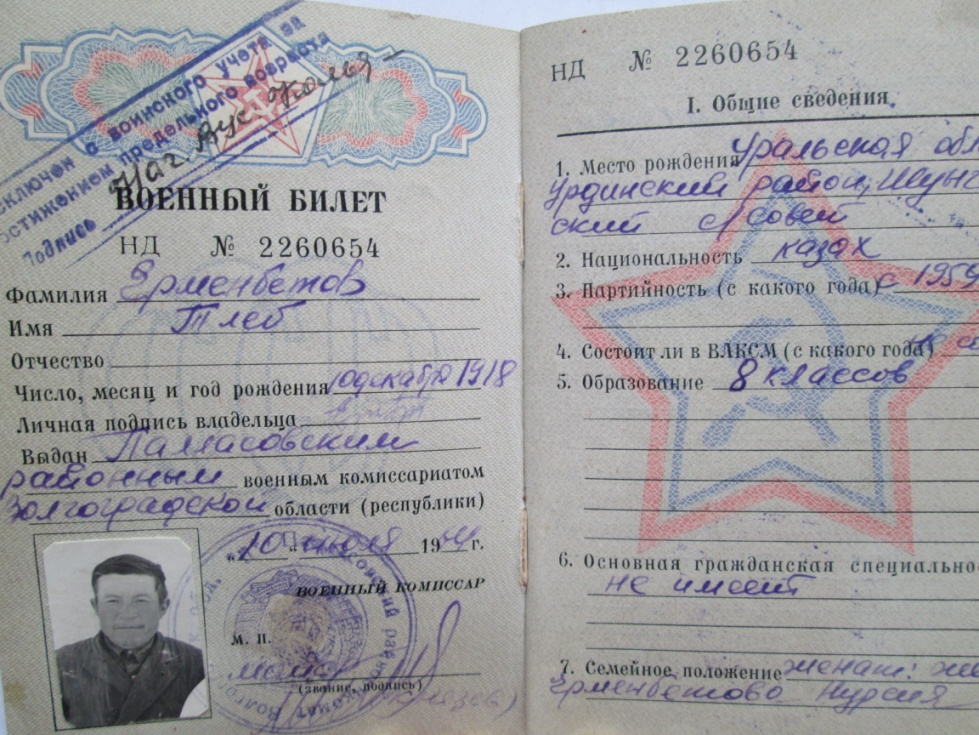 исключен с воинского учета за
достижением предельного возраста
Нач.
Подпись
ВОЕННЫЙ БИЛЕТ
НД № 2260654
Фамилия Ерменбетов
Имя Тлеб
Отчество
Число, месяц и год рождения 10 декабр 1918
Личная подпись владельца
Выдан Палласовским
районным военным комиссариатом
Волгоградской области (республики)
"10" июля 1964 г.
ВОЕННЫЙ КОМИССАР
М. П.
(звание, подпись)
НД № 2260654
I. Общие сведения
1. Место рождения Уральская обл
Урдинский район,
ский с/совет
2. Национальность казах
3. Партийность (с какого года) с 1959
4. Состоит ли в ВЛКСМ (с какого года)
5. Образование 8 классов
6. Основная гражданская специально
не имеет
7. Семейное положение женат:
Ерменбетова Нурсия